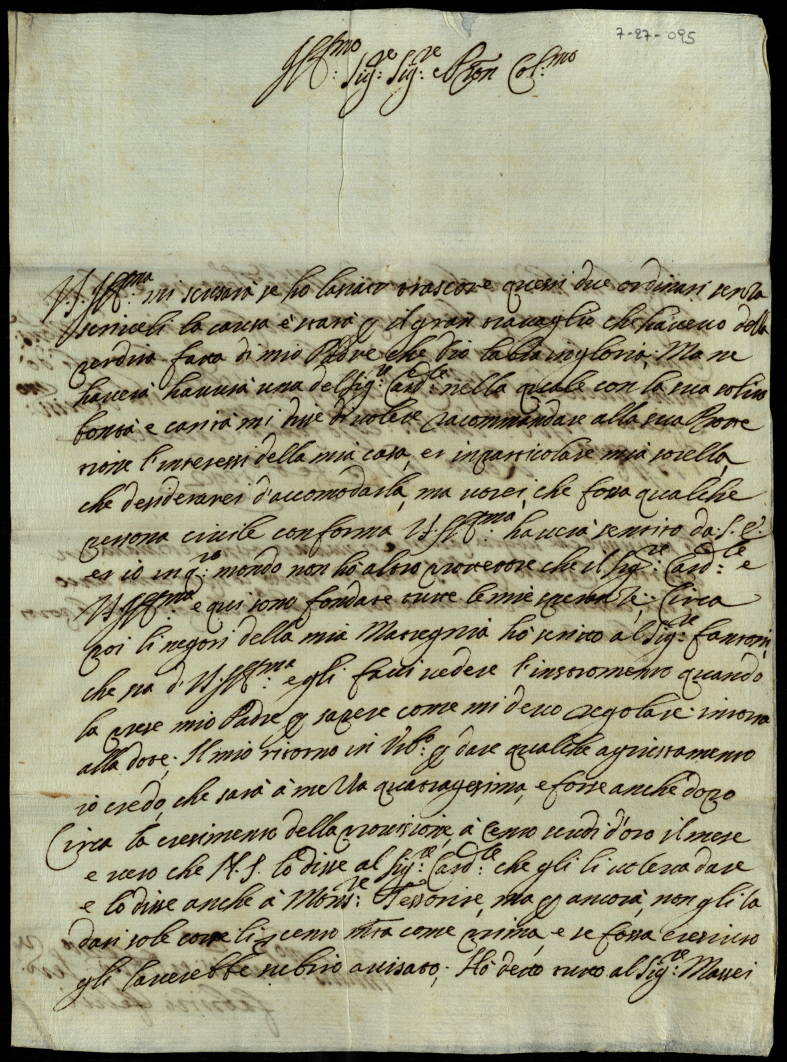 7-27-095
Ill:mo Sig:re Sig:re e Pron Col:mo
V.S. Ill:ma mi scusarà se ho lasciato trascore questi due ordinari senza
scriverli la causa è stata p il gran travaglio che havevo della
perdita fatta di mio Padre che Dio labbia in gloria. Ma ne
haverà havuta una del Sig:re Card:le nella quale con la sua solita
bontà e carità mi disse di volere racommandare alla sua Prote
tione l'interessi della mia casa, et in particolare mia sorella,
che desiderarei d'accomodarla, ma vorei, che fosse qualche
persona civile conforma V.S. Ill:ma haverà sentito da S. E.
et io in q:to mondo non ho altro protettore che il Sig:re Card:le e
V.S. Ill:ma e qui sono fondate tutte le mie speranza. Circa
poi li negoti della mia Matregnia ho scritto al Sig:re Fantoni,
che pa d V.S. Ill:ma egli facci vedere l'instromento quando
la prese mio Padre p sapere come mi devo regolare intorno
alla dote. Il mio ritorno in Urb:o p dare qualche agiustamento
io credo, che sarà à mezza quatragesima, e forse anche dopo
Circa la cresimento della provisione, à cento scudi d'oro il mese
e vero che N.S. lo disse al Sig:re Card:le che gli li voleva dare
e lo disse anche à Mons:re Tessoriere, ma p ancora, non gli la
dati solo core li cento m:ta come prima, e se fosse cresciuto
gli laverebbe subito avisato. Ho detto tutto al Sig:re Massei